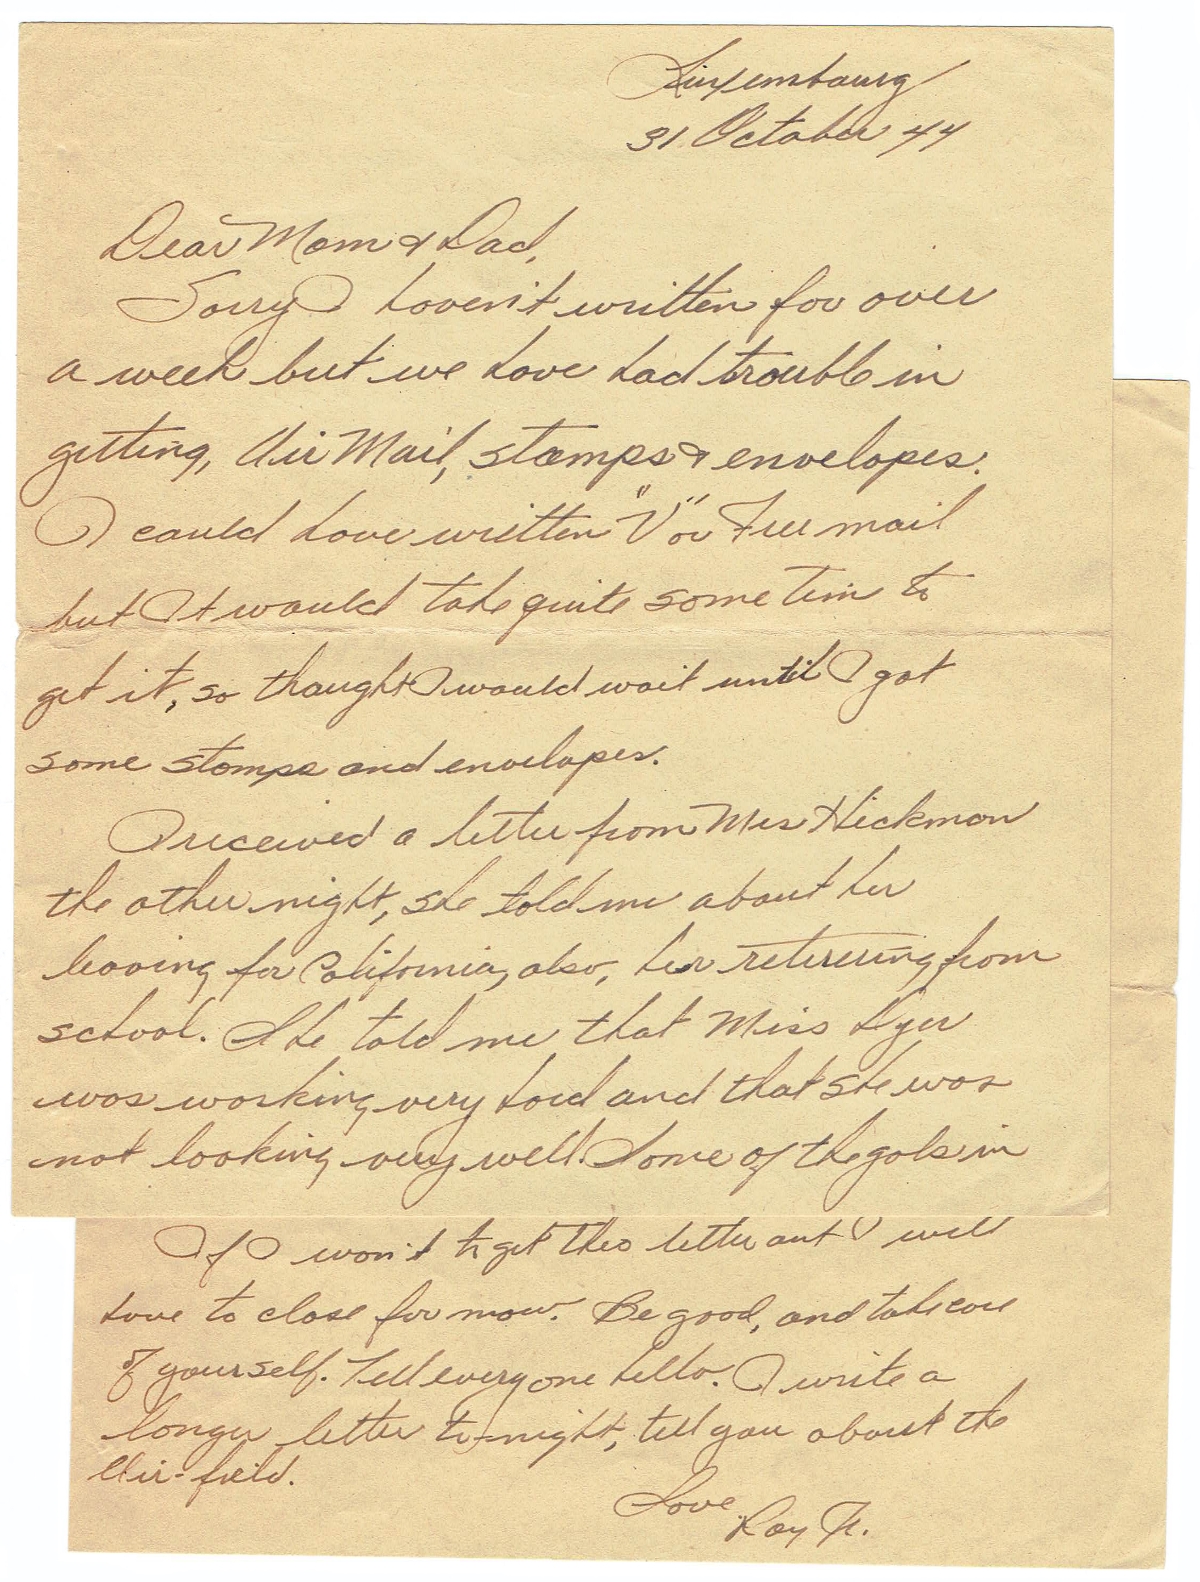 Luxembourg
31 October 44
Dear Mom & Dad,
Sorry I haven't written for over
a week but we have had trouble in
getting, Air Mail, stamps & envelopes.
I could have written "V" or Free mail
but It would take quite some time to
get it, so thought I would wait until I got
some stamps and envelopes.
I received a letter from Mrs Hickman
the other night, she told me about her
leaving for California, also, her retirering from
school. She told me that Miss Dyer
was working very hard and that she was
not looking very well. Some of the gals in
If I won't to get this letter out I will
have to close for now. Be good, and take care
of yourself. Tell everyone hello. I write a
longer letter to-night, tell you about the
Air-field.
Love
Roy